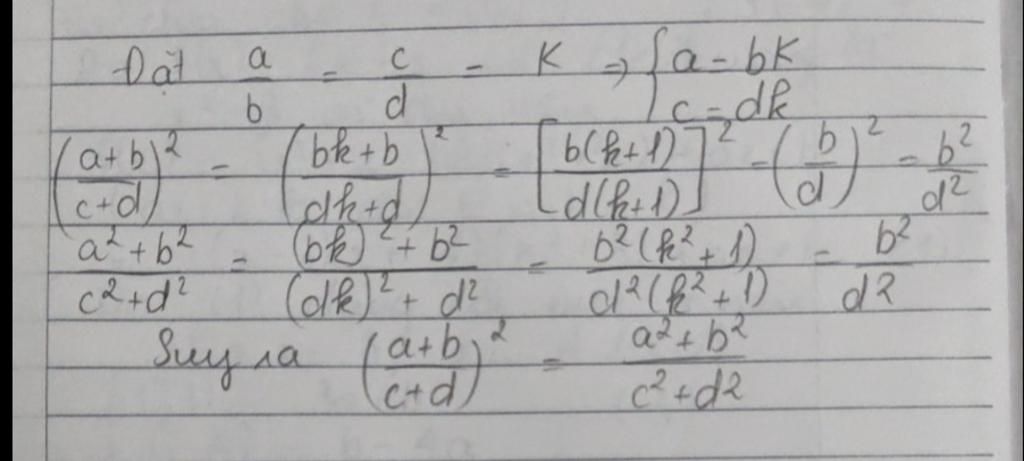 Đặt a/b = c/d = K => { a = bK
c = dk
((a+b)/(c+d))² = ((bk+b)/(dk+d))² = [b(k+1)/d(k+1)]² = (b/d)² = b²/d²
(a²+b²)/(c²+d²) = ((bk)²+b²)/((dk)²+d²) = b²(k²+1)/d²(k²+1) = b²/d2
Suy ra ((a+b)/(c+d))² = (a²+b²)/(c²+d2)